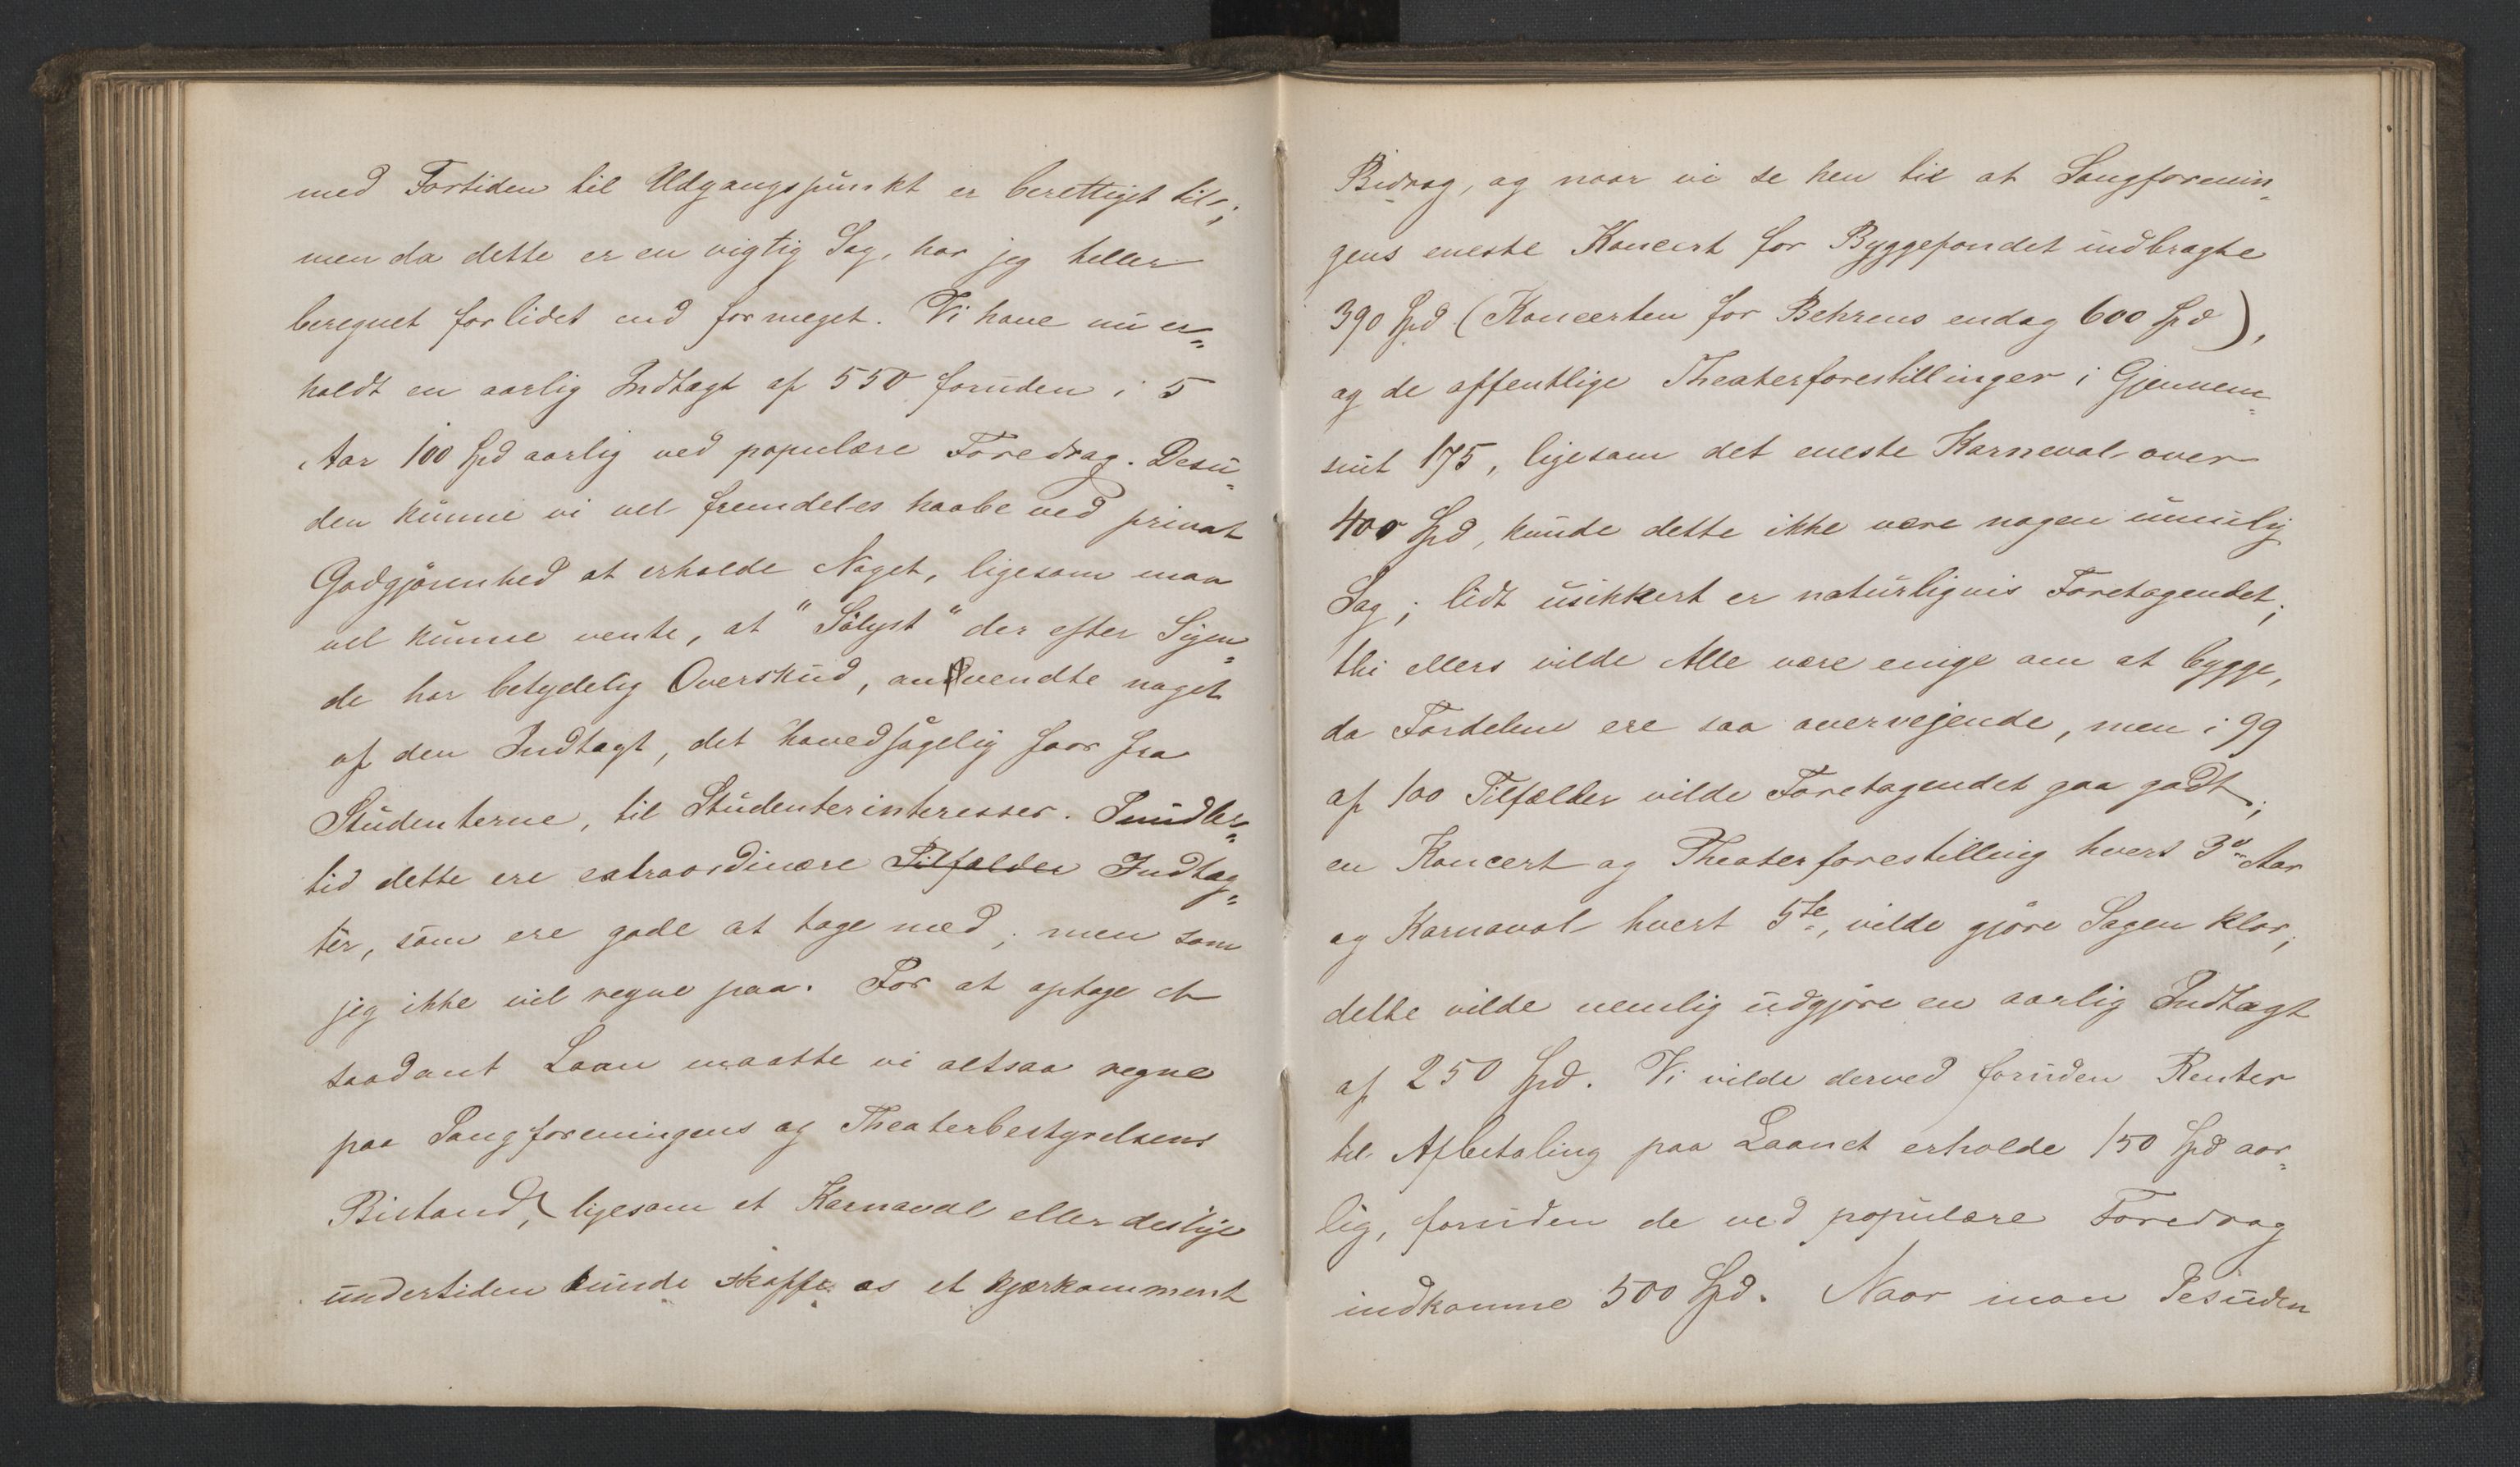 med Fortiden til Udgangspunkt er berettiget til;
men da dette er en vigtig Sag, har jeg heller
beregnet for lidet end for meget. Vi have nu er„
holdt en aarlig Indtægt af 550 foruden i 5
Aar 100 Spd aarlig ved populære Foredrag. Desu„
den kunne vi vel fremdeles haabe ved privat
Godgjørenhed at erholde Noget, ligesom man
vel kunne vente, at "Sølyst" der efter Sigen„
de har betydelig Overskud, anvendte noget
af den Indtægt, det hovedsagelig faar fra
Studenterne, til Studenterinteresser. Imidler„
tid dette ere extraordinære Tilfælder Indtæg„
ter, som ere gode at tage med, men som
jeg ikke vil regne paa. For at optage et
saadant Laan maatte vi altsaa regne
paa Sangforeningens og Theaterbestyrelsens
Bistand, ligesom et Karnaval eller deslige
undertiden kunde skaffe os et kjærkomment
Bidrag, og naar vi se hen til at Sangforenin„
gens eneste Koncert for Byggefondet indbragte
390 Spd (Koncerten for Behrens endog 600 Spd),
og de offentlige Theaterforestillinger i Gjennem„
snit 175, ligesom det eneste Karneval over
400 Spd, kunde dette ikke være nogen umulig
Sag; lidt usikkert er naturligvis Foretagendet;
thi ellers vilde Alle være enige om at bygge,
da Fordelene ere saa overvejende, men i 99
af 100 Tilfælder vilde Foretagendet gaa godt;
en Koncert og Theaterforestilling hvert 3die Aar
og Karnaval hvert 5te, vilde gjøre Sagen klar;
dette vilde nemlig udgjøre en aarlig Indtægt
af 250 Spd. Vi vilde derved foruden Renter
til Afbetaling paa Laanet erholde 150 Spd aar„
lig, foruden de ved populære Foredrag
indkomne 500 Spd. Naar man desuden